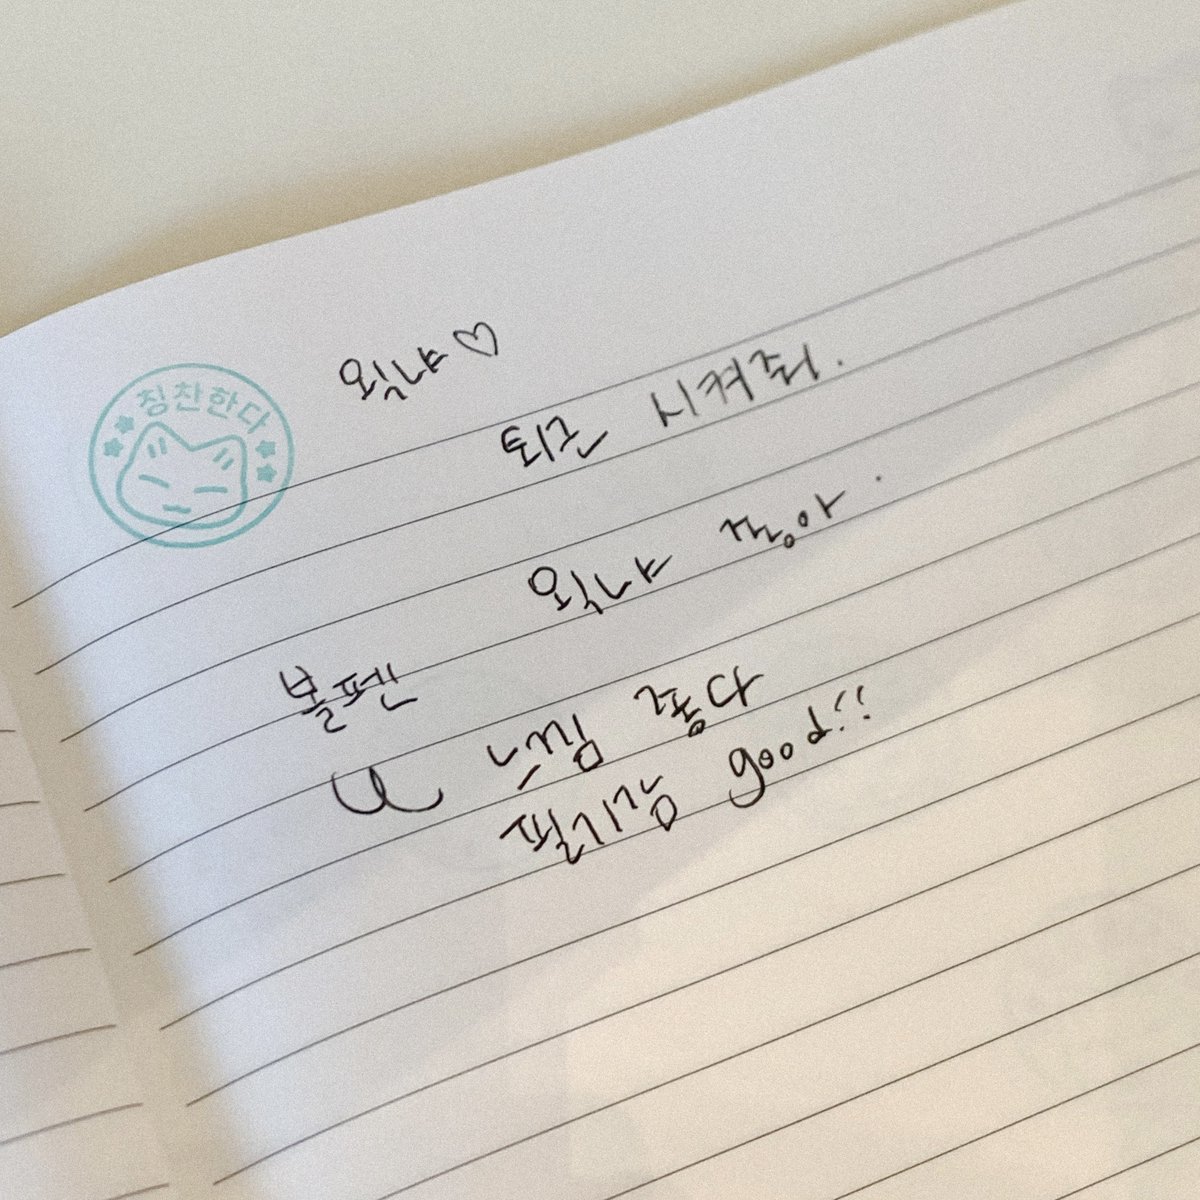 칭찬한다
윅냐♡
퇴근 시켜줘.
윅냐 짱아.
볼펜
느낌 좋다
필기감 good!!